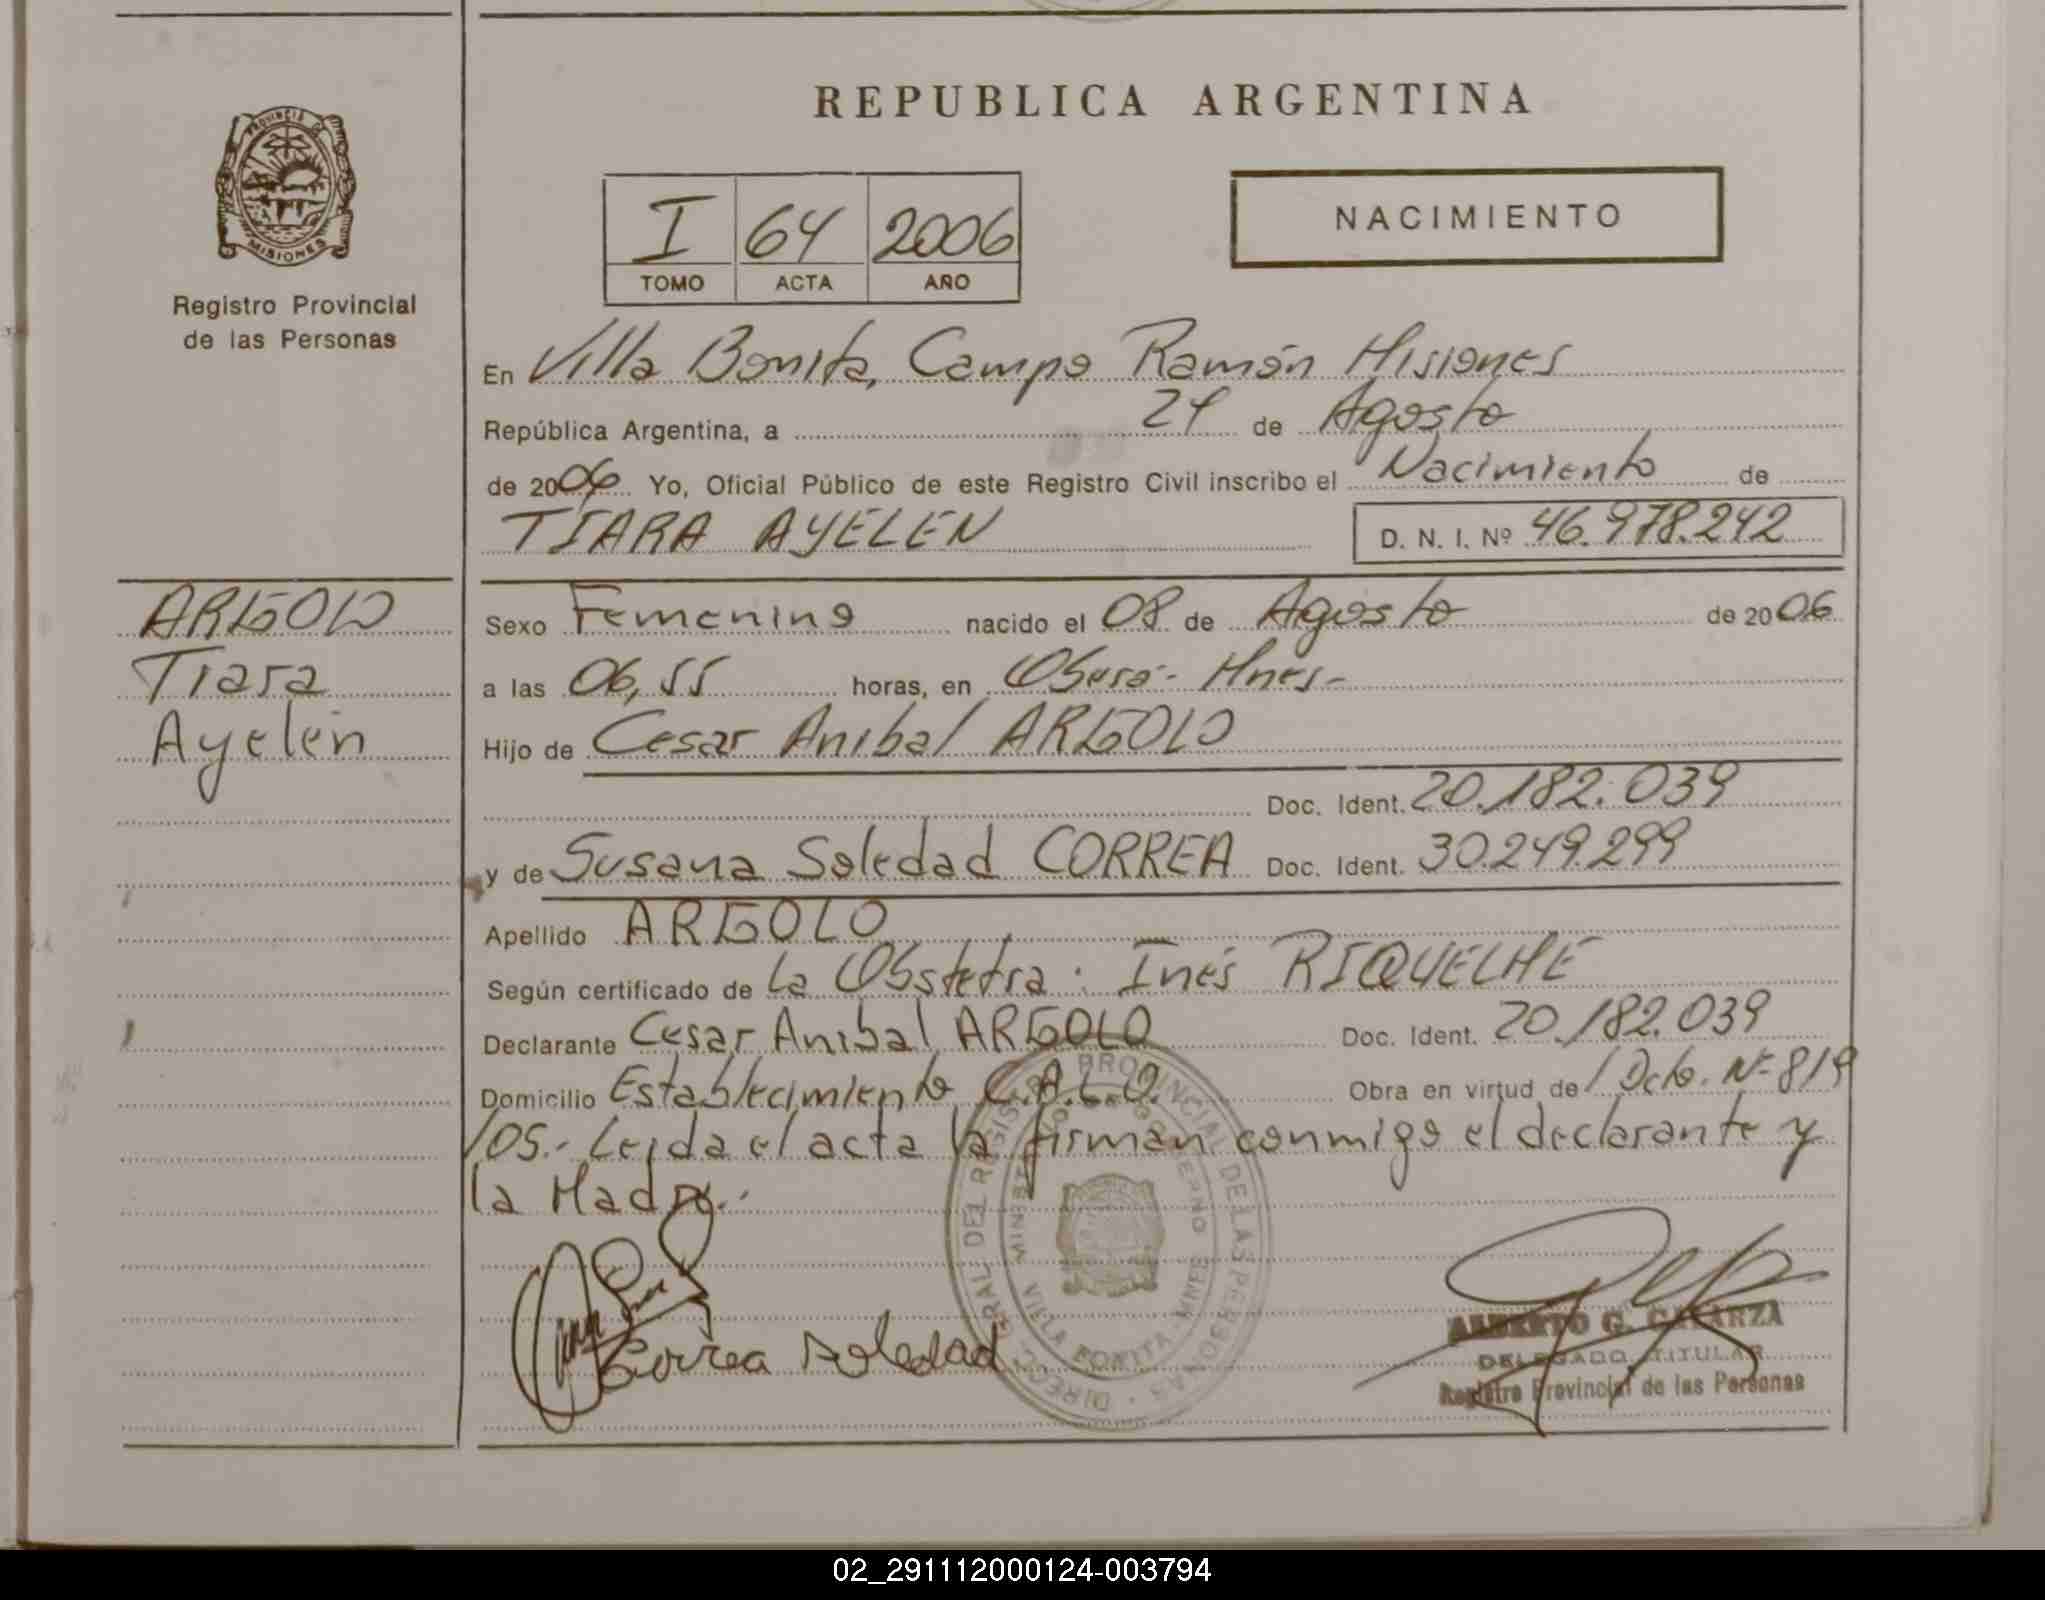 REPUBLICA ARGENTINA
PROVINCIA DE
MISIONES
Registro Provincial
de las Personas
I 64 2006
TOMO ACTA AÑO
NACIMIENTO
En Villa Bonita, Campo Ramón Misiones
República Argentina, a 24 de Agosto
de 2006 Yo, Oficial Público de este Registro Civil inscribo el Nacimiento de
TIARA AYELEN D. N. I. Nº 46.978.242
ARGOLO
Tiara
Ayelén
Sexo Femenino nacido el 08 de Agosto de 2006
a las 06,55 horas, en Oberá- Mnes-
Hijo de Cesar Anibal ARGOLO
Doc. Ident. 20.182.039
y de Susana Soledad CORREA Doc. Ident. 30.249.299
Apellido ARGOLO
Según certificado de La Obstetra: Inés RIQUELME
Declarante Cesar Anibal ARGOLO Doc. Ident. 20.182.039
Domicilio Establecimiento C.A.L.O. Obra en virtud de / Dcto. Nº 819
/05.- Leida el acta la firman conmigo el declarante y
la Madre.-
Correa Soledad
DIREC. GRAL. DEL REGISTRO PROVINCIAL DE LAS PERSONAS
MINISTERIO DE GOBIERNO
VILLA BONITA MNES
ALBERTO G. CAFARZA
DELEGADO TITULAR
Registro Provincial de las Personas
02_291112000124-003794